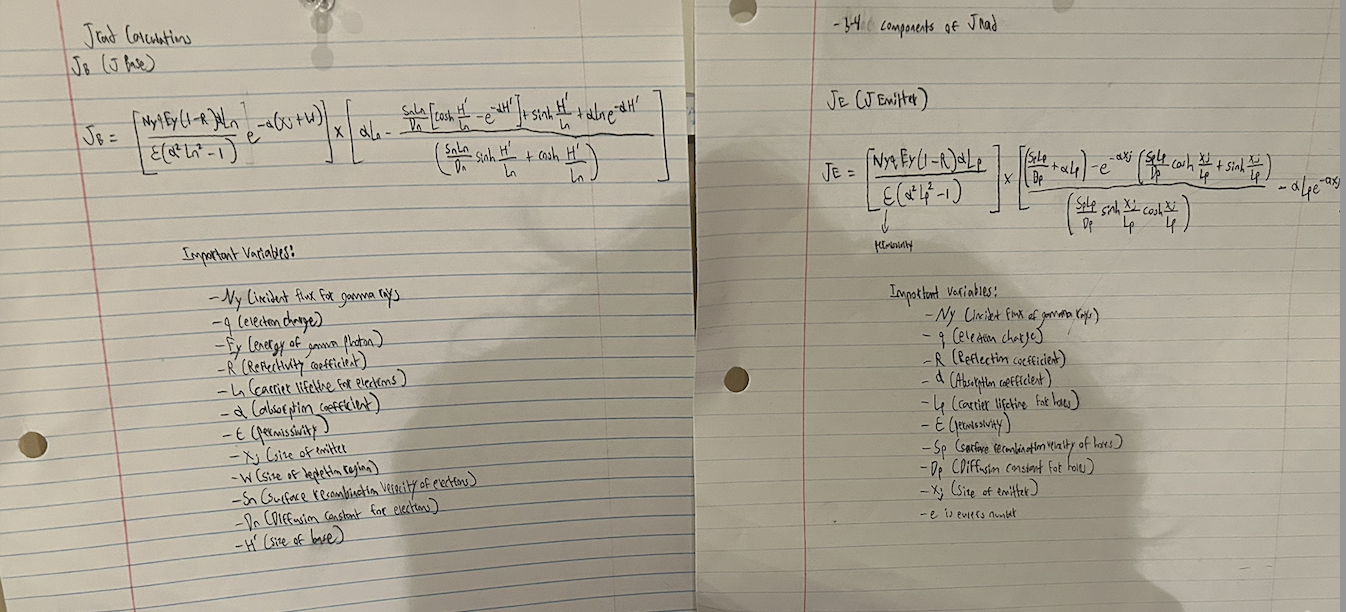 Jrad Calculations
J_B (J Base)
J_B = [ NγqEγ(1-R)αLn / ε(α²Ln²-1) ] e^-α(xj+W) ] × [ αLn - SnLn/Dn [cosh H'/Ln - e^-αH'] + sinh H'/Ln + αLn e^-αH' / ( SnLn/Dn sinh H'/Ln + cosh H'/Ln ) ]
Important Variables:
- Nγ (incident flux for gamma rays
- q (electron charge)
- Eγ (energy of gamma photon)
- R (Reflectivity coefficient)
- Ln (carrier lifetime for electrons)
- α (absorption coefficient)
- ε (permissivity)
- Xj (size of emitter
- W (size of depletion region)
- Sn (surface recombination velocity of electrons)
- Dn (Diffusion constant for electrons)
- H' (size of base)
- 3-4 components of Jrad
J_E (J Emitter)
J_E = [ Nγq Eγ(1-R)αLp / ε(α²Lp²-1) ] × [ (SpLp/Dp + αLp) - e^-αxj ( SpLp/Dp cosh xj/Lp + sinh xj/Lp ) / ( SpLp/Dp sinh xj/Lp cosh xj/Lp ) - αLp e^-αxj
Important variables:
- Nγ (incident flux of gamma rays)
- q (electron charge)
- R (Reflection coefficient)
- α (Absorption coefficient)
- Lp (carrier lifetime for holes)
- ε (permissivity)
- Sp (surface recombination velocity of holes)
- Dp (Diffusion constant for holes)
- Xj (size of emitter)
- e is eulers number